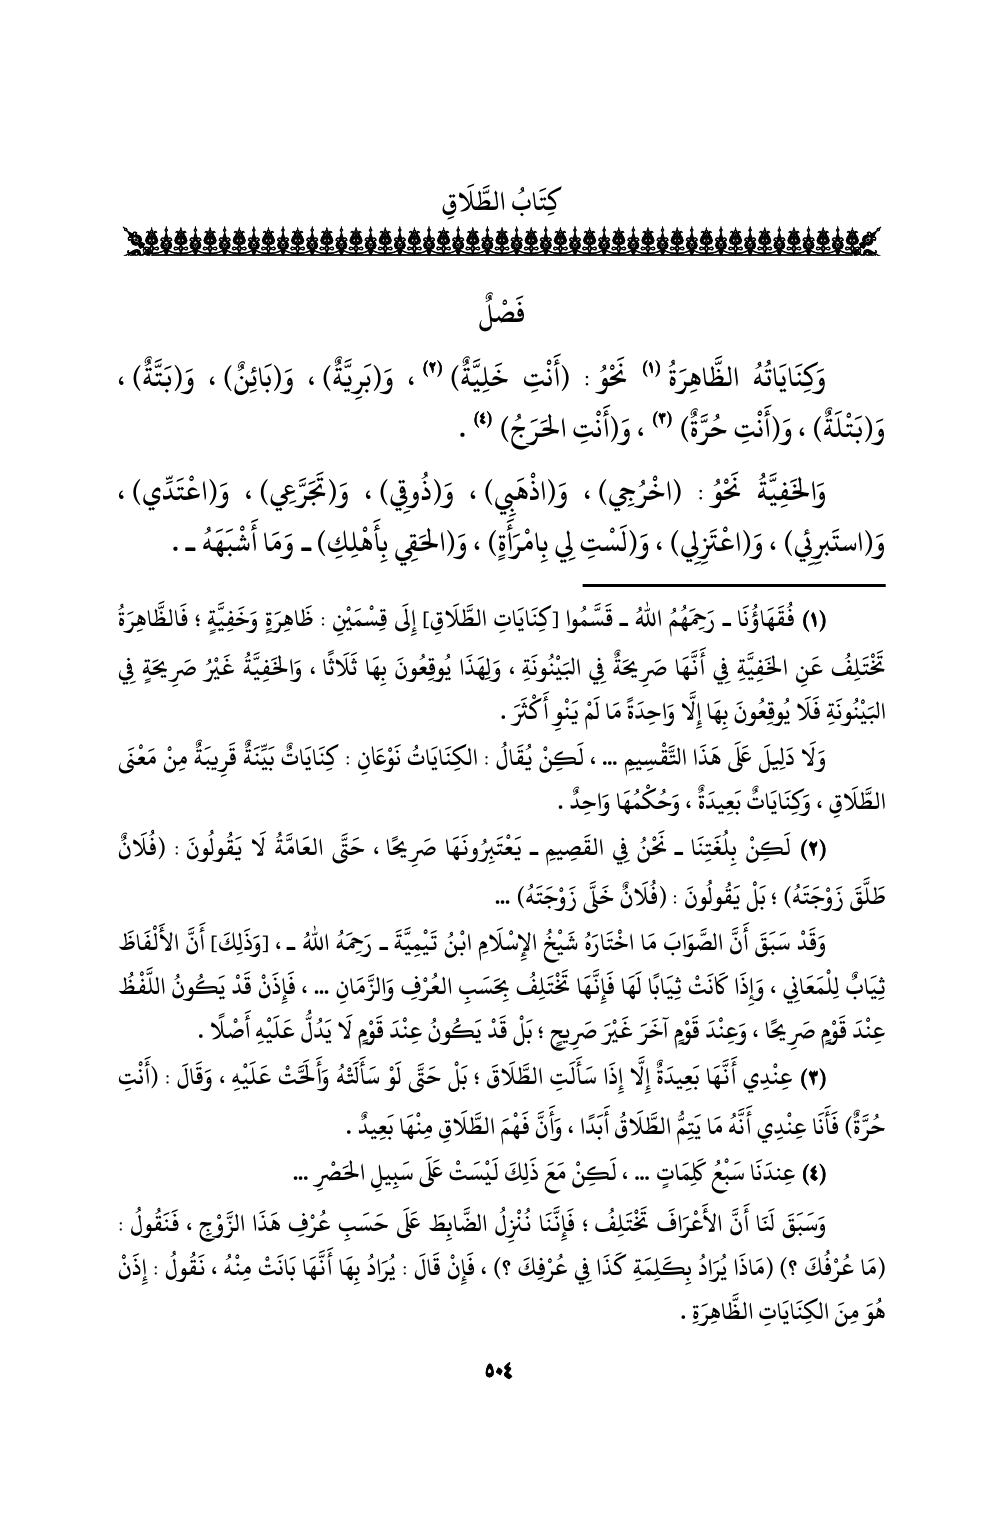 كِتَابُ الطَّلَاقِ
فَصْلٌ
وَكِنَايَاتُهُ الظَّاهِرَةُ (١) نَحْوُ : (أَنْتِ خَلِيَّةٌ) (٢) ، وَ(بَرِيَّةٌ) ، وَ(بَائِنٌ) ، وَ(بَتَّةٌ) ،
وَ(بَتْلَةٌ) ، وَ(أَنْتِ حُرَّةٌ) (٣) ، وَ(أَنْتِ الحَرَجُ) (٤) .
وَالخَفِيَّةُ نَحْوُ : (اخْرُجِي) ، وَ(اذْهَبِي) ، وَ(ذُوقِي) ، وَ(تَجَرَّعِي) ، وَ(اعْتَدِّي) ،
وَ(استَبرِئِي) ، وَ(اعْتَزِلِي) ، وَ(لَسْتِ لِي بِامْرَأَةٍ) ، وَ(الحَقِي بِأَهْلِكِ) ـ وَمَا أَشْبَهَهُ ـ .
(١) فُقَهَاؤُنَا ـ رَحِمَهُمُ اللهُ ـ قَسَّمُوا [كِنَايَاتِ الطَّلَاقِ] إِلَى قِسْمَيْنِ : ظَاهِرَةٍ وَخَفِيَّةٍ ؛ فَالظَّاهِرَةُ
تَخْتَلِفُ عَنِ الخَفِيَّةِ فِي أَنَّهَا صَرِيحَةٌ فِي البَيْنُونَةِ ، وَلِهَذَا يُوقِعُونَ بِهَا ثَلَاثًا ، وَالخَفِيَّةُ غَيْرُ صَرِيحَةٍ فِي
البَيْنُونَةِ فَلَا يُوقِعُونَ بِهَا إِلَّا وَاحِدَةً مَا لَمْ يَنْوِ أَكْثَرَ .
وَلَا دَلِيلَ عَلَى هَذَا التَّقْسِيمِ ... ، لَكِنْ يُقَالُ : الكِنَايَاتُ نَوْعَانِ : كِنَايَاتٌ بَيِّنَةٌ قَرِيبَةٌ مِنْ مَعْنَى
الطَّلَاقِ ، وَكِنَايَاتٌ بَعِيدَةٌ ، وَحُكْمُهَا وَاحِدٌ .
(٢) لَكِنْ بِلُغَتِنَا ـ نَحْنُ فِي القَصِيمِ ـ يَعْتَبِرُونَهَا صَرِيحًا ، حَتَّى العَامَّةُ لَا يَقُولُونَ : (فُلَانٌ
طَلَّقَ زَوْجَتَهُ) ؛ بَلْ يَقُولُونَ : (فُلَانٌ خَلَّى زَوْجَتَهُ) ...
وَقَدْ سَبَقَ أَنَّ الصَّوَابَ مَا اخْتَارَهُ شَيْخُ الإِسْلَامِ ابْنُ تَيْمِيَّةَ ـ رَحِمَهُ اللهُ ـ ، [وَذَلِكَ] أَنَّ الأَلْفَاظَ
ثِيَابٌ لِلْمَعَانِي ، وَإِذَا كَانَتْ ثِيَابًا لَهَا فَإِنَّهَا تَخْتَلِفُ بِحَسَبِ العُرْفِ وَالزَّمَانِ ... ، فَإِذَنْ قَدْ يَكُونُ اللَّفْظُ
عِنْدَ قَوْمٍ صَرِيحًا ، وَعِنْدَ قَوْمٍ آخَرَ غَيْرَ صَرِيحٍ ؛ بَلْ قَدْ يَكُونُ عِنْدَ قَوْمٍ لَا يَدُلُّ عَلَيْهِ أَصْلًا .
(٣) عِنْدِي أَنَّهَا بَعِيدَةٌ إِلَّا إِذَا سَأَلَتِ الطَّلَاقَ ؛ بَلْ حَتَّى لَوْ سَأَلَتْهُ وَأَلَحَّتْ عَلَيْهِ ، وَقَالَ : (أَنْتِ
حُرَّةٌ) فَأَنَا عِنْدِي أَنَّهُ مَا يَتِمُّ الطَّلَاقُ أَبَدًا ، وَأَنَّ فَهْمَ الطَّلَاقِ مِنْهَا بَعِيدٌ .
(٤) عِندَنَا سَبْعُ كَلِمَاتٍ ... ، لَكِنْ مَعَ ذَلِكَ لَيْسَتْ عَلَى سَبِيلِ الحَصْرِ ...
وَسَبَقَ لَنَا أَنَّ الأَعْرَافَ تَخْتَلِفُ ؛ فَإِنَّنَا نُنْزِلُ الضَّابِطَ عَلَى حَسَبِ عُرْفِ هَذَا الزَّوْجِ ، فَنَقُولُ :
(مَا عُرْفُكَ ؟) (مَاذَا يُرَادُ بِكَلِمَةِ كَذَا فِي عُرْفِكَ ؟) ، فَإِنْ قَالَ : يُرَادُ بِهَا أَنَّهَا بَانَتْ مِنْهُ ، نَقُولُ : إِذَنْ
هُوَ مِنَ الكِنَايَاتِ الظَّاهِرَةِ .
٥٠٤